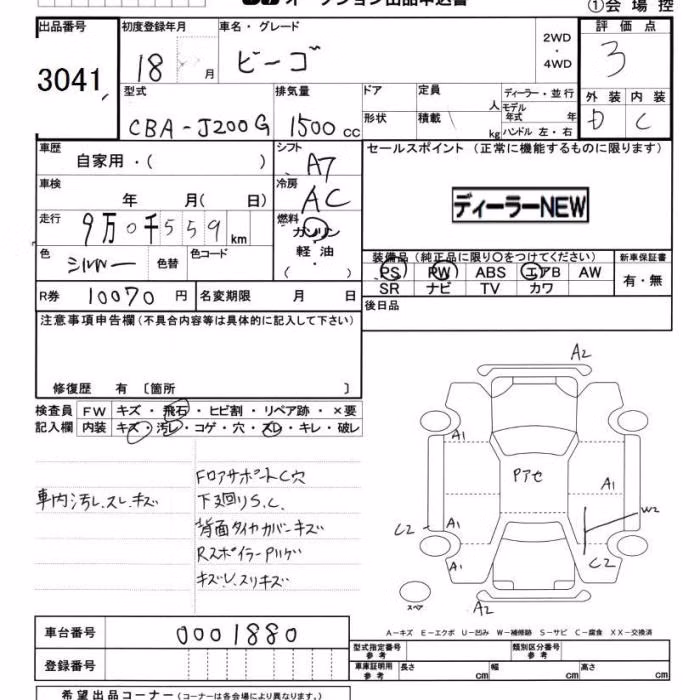 オークション出品申込書
①会場控
出品番号 初度登録年月 車名・グレード 2WD ・ 4WD 評価点
3041 18 月 ビーゴ 3
型式 排気量 ドア 定員 人 ディーラー・並行 外装 内装
CBA-J200G 1500cc 形状 積載 kg モデル年式 年 D C
ハンドル 左・右
車歴 自家用・( ) シフト A7 セールスポイント (正常に機能するものに限ります)
車検 年 月( 日) 冷房 AC ディーラーNEW
走行 9万0千559km 燃料 ガソリン 軽油 ・( )
色 シルバー 色替 色コード 装備品 (純正品に限り○をつけてください) 新車保証書
PS PW ABS エアB AW 有・無
SR ナビ TV カワ
R券 10070円 名変期限 月 日 後日品
注意事項申告欄 (不具合内容等は具体的に記入して下さい)
修復歴 有 〔箇所 〕
検査員 FW キズ・飛石・ヒビ割・リペア跡・×要
記入欄 内装 キズ・汚レ・コゲ・穴・スレ・キレ・破レ
車内汚レ.スレ.キズ
FロアサポートC穴
下廻りS.C.
背面タイヤカバーキズ
Rスポイラー
キズU.スリキズ
A2
A1
Pアセ
A1
W2
C2 A1
A1 C2
スペア A2
A-キズ E-エクボ U-凹み W-補修跡 S-サビ C-腐食 XX-交換済
車台番号 0001880
型式指定番号 参考 類別区分番号 参考
登録番号
車庫証明用 参考 長さ cm 幅 cm 高さ cm
希望出品コーナー (コーナーは各会場により異なります。)